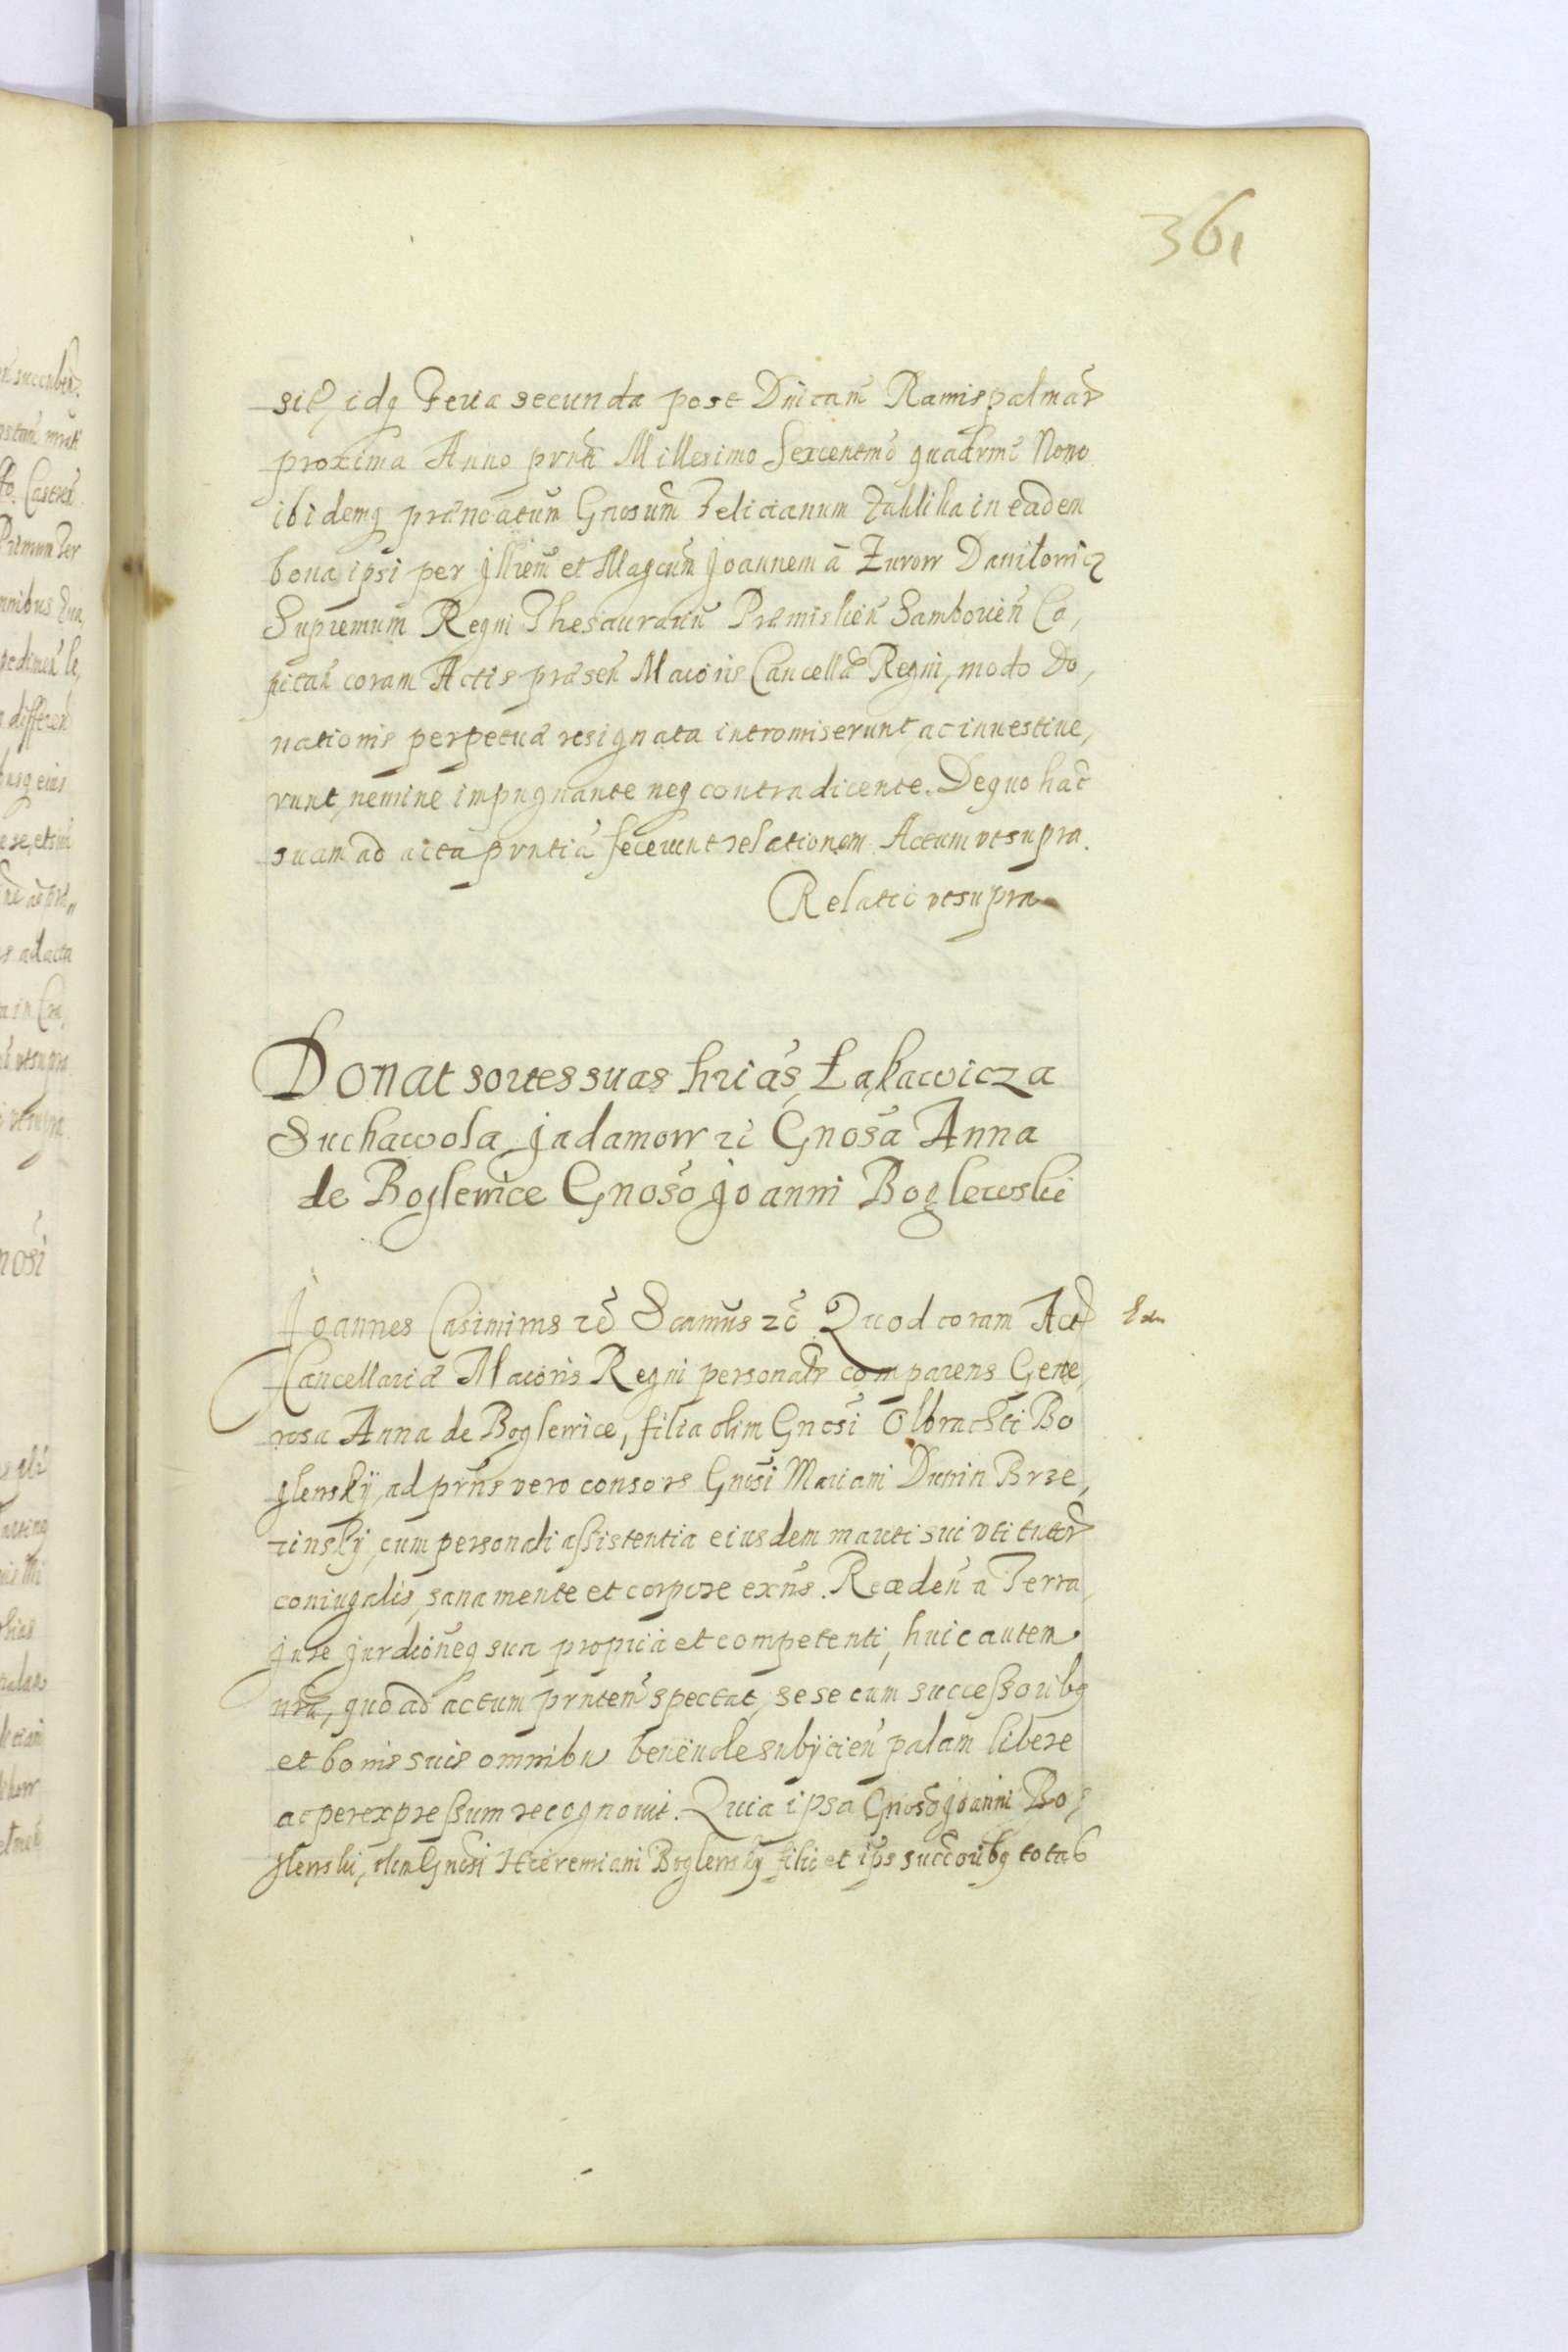 361
siỻ, idq Feria secunda post Dnicam̃ Ramispalmar̃
proxima Anno prñti Millesimo Sexcentmõ quadrmõ Nono
ibidemq prænoatum̃ Gnosum̃ Felicianum Zahlika in eadem
bona ipsi per Jllrem̃ et Magcum̃ Joannem ã Zurow Daniłowicz
Supremum̃ Regni Thesaurariũ Præmislien̄ Samborien̄ Ca,
pitañ coram Actis præseñ Maioris Cancellæ Regni, modo Do,
nationis perpetuæ resignata intromiserunt, ac inuestiue,
runt, nemine impugnante neq contradicente. De quo hanc̃
suam ad acta prntiã fecerunt relationem. Actum vt supra.
Relatio vt supra
Donat sortes suas hrias̃, Łąkawicza
Suchawola Jadamow 2c̃ Gnosã Anna
de Boglewice Gnosõ Joanni Boglewski
Joannes Casimirus 2c̃ Scamũs 2c̃ Quod coram Act̃
Cancellariæ Maioris Regni personałr comparens Gene,
rosa Anna de Boglewice, filia olim Gnosĩ Olbrachti Bo
glewskÿ, ad prñs vero consors Gnosĩ Mariani Dunin Brze,
zinskÿ, cum personali assistentia eiusdem mariti sui vti tutor̃
coniugalis, sana mente et corpore exñs. Recedeñ a Terra
Jure Jurdiõneq sua propria et competenti, huic autem
nrã, quo ad actum prntem̃ spectat, sese cum successoribq
et bonis suis omnibu beneuole subÿcien̄ palam libere
ac per expressum recognouit. Quia ipsa Gnosõ Joanni Bo,
glewski, olim Gnosĩ Hieremiani Boglewskÿ filio et ips̃ succoribq totas